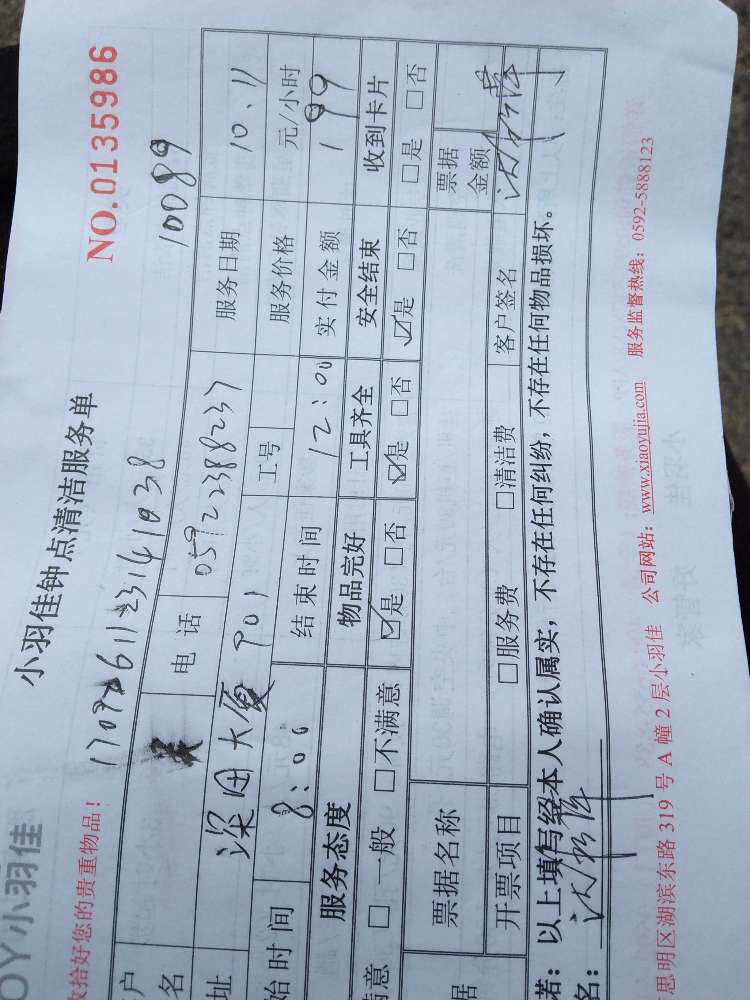 OY小羽佳
小羽佳钟点清洁服务单
NO.0135986
收拾好您的贵重物品！
10089
户名 电话 05922388237 服务日期 10.11
址 深田大厦 901 工号 服务价格 元/小时
始时间 8:00 结束时间 12:00 实付金额 199
服务态度 物品完好 工具齐全 安全结束 收到卡片
满意 □ 一般 □不满意 ☑是 □否 ☑是 □否 ☑是 □否 □是 □否
据 票据名称 票据金额
开票项目 □服务费 □清洁费 客户签名
诺：以上填写经本人确认属实，不存在任何纠纷，不存在任何物品损坏。
名：
思明区湖滨东路 319 号 A 幢 2 层小羽佳 公司网站：www.xiaoyujia.com 服务监督热线：0592-5888123